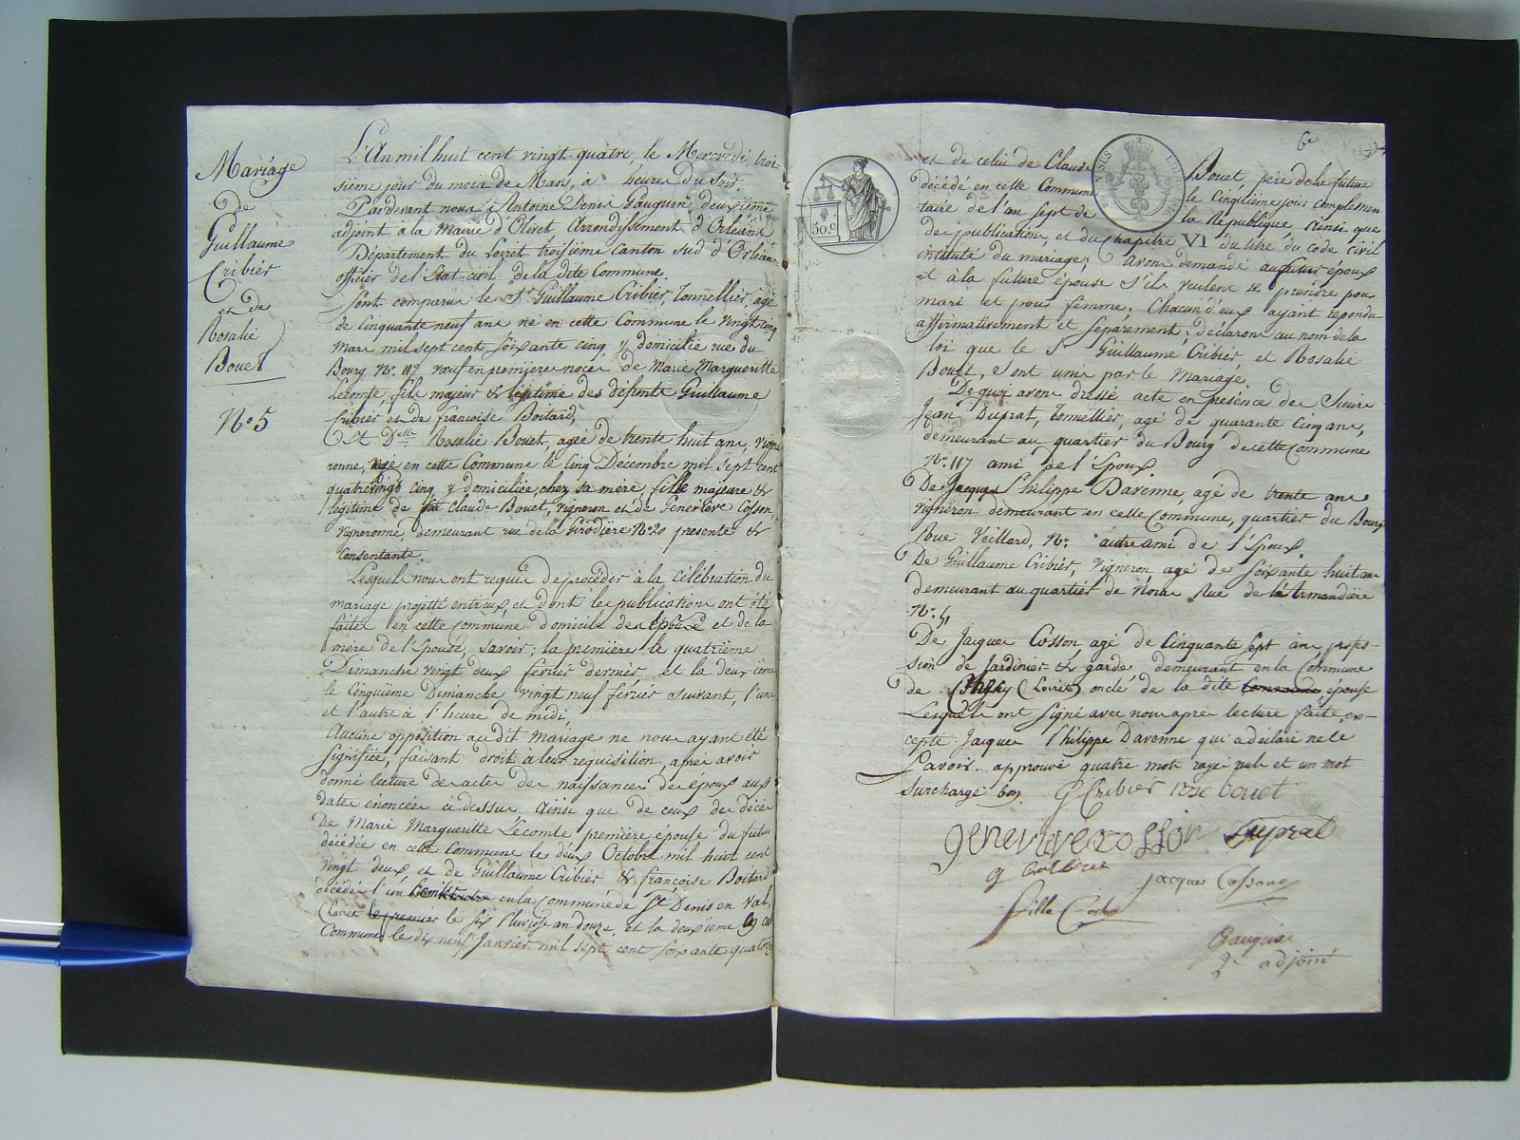 Mariage
de
Guillaume
Cribier
et de
Rosalie
Bouet
N.o 5
L'An mil huit cent vingt quatre, le Mercredi troi
sième jour du mois de Mars, à heures du Soir.
Pardevant nous Antoine Denis Gauguin deuxieme
adjoint à la Mairie d'Olivet, Arrondissement d'Orléans
Département du Loiret troisième Canton Sud d'Orléans
officier de l'Etat civil de la dite Commune.
Sont comparus le Sr. Guillaume Cribier, Tonnellier, agé
de Cinquante neuf ans né en cette Commune le vingt cinq
Mars mil sept cent soixante cinq, y domicilié rue du
Bourg No. 117 veuf en premiere noces de Marie Margueritte
Lecomte, fils majeur & légitime des défunts Guillaume
Cribier et de françoise Boitard,
Et Delle Rosalie Bouet, agée de trente huit ans, Vigne
ronne, née en cette Commune le Cinq Décembre mil sept cent
quatrevingt cinq y domiciliée, chez sa mère, fille majeure &
légitime de feu Claude Bouet, Vigneron et de Geneviève Cosson,
Vigneronne, demeurant rue de la Girodière No 20 présente &
Consentante.
Lesquels nous ont requis de procéder à la Célébration du
mariage projetté entr'eux et dont les publications ont été
faites en cette commune domicile de l'Epoux et de la
mère de l'Epouse, Savoir; la première le quatrième
Dimanche vingt deux février dernier, et la deuxième
le Cinquième Dimanche vingt neuf février suivant, l'une
et l'autre à l'heure de midi,
Aucune opposition au dit mariage ne nous ayant été
signifiée, faisant droit à leur requisition, après avoir
donné lecture des actes des naissances des époux aux
dates énoncées ci dessus. Ainsi que de ceux des décès
De Marie Margueritte Lécomte première épouse du futur
décédée en cette Commune le deux Octobre mil huit cent
vingt deux et de Guillaume Cribier & françoise Boitard
décédés l'un en la Commune de St Denis en Val,
(Loiret le premier le six Pluviose an douze, et la deuxieme en cette
Commune le dix neuf Janvier mil sept cent soixante quatorze
6e
et de celui de Claude Bouet père de la future
décédé en cette Commune le Cinqième jour complémen
taire de l'an Sept de la République Ainsi que
de publication, et du Chapitre VI du titre du code civil
intitulé du mariage; Avons demandé au futur époux
et à la future épouse S'ils veulent se prendre pour
mari et pour femme. Chacun d'eux ayant répondu
affirmativement et séparément; déclarons au nom de la
loi que le Sr Guillaume Cribier et Rosalie
Bouet, sont unis par le Mariage.
De quoi avons dressé acte en présence des Sieurs
Jean Duprat, Tonnellier, agé de quarante Cinq ans,
demeurant au quartier du Bourg de cette Commune
No. 117 ami de l'Epoux.
De Jacques Philippe Davenne, agé de trente ans
vigneron demeurant en cette Commune, quartier du Bourg
Rue Veillard, No. autre ami de l'Epoux
De Guillaume Cribier, Vigneron agé de soixante huit ans
demeurant au quartier de Rue de
No. 4
De Jacques Cosson agé de Cinquante Sept ans profes-
sion de Jardinier & garde, demeurant en la Commune
de (Loiret) oncle de la dite Commune, épouse
Lesquels ont signé avec nous après lecture faite, ex-
cepté Jacques Philippe Davenne qui a déclaré ne le
Savoir. approuvé quatre mots rayés nuls et un mot
surchargé bon. G Cribier rose bouet
genevieve cossion Duprat
g cribier jacques Cosson
Gauguin
2e adjoint
50.c